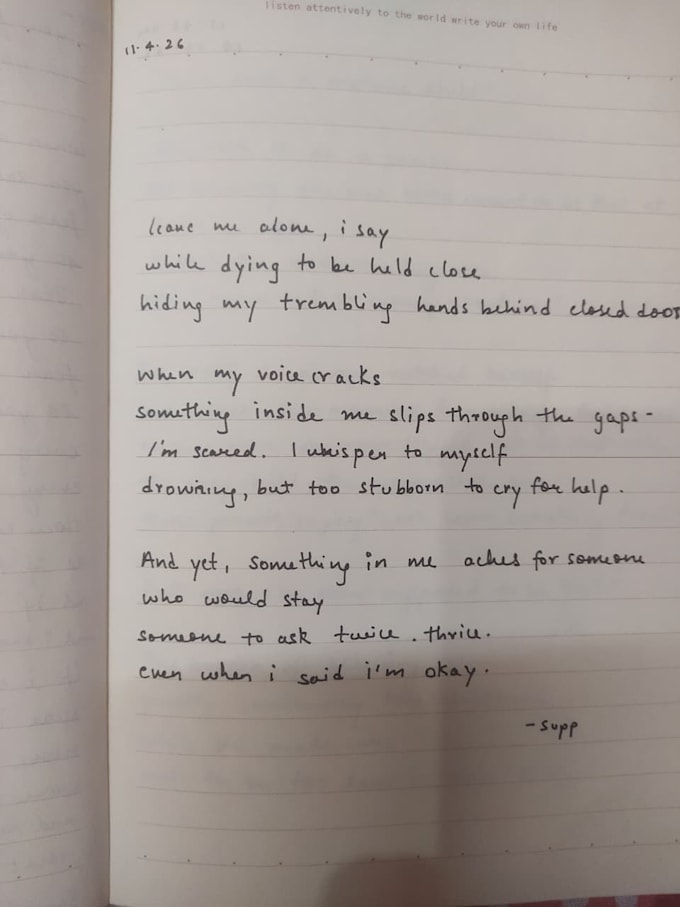 listen attentively to the world write your own life
11.4.26
leave me alone, i say
while dying to be held close
hiding my trembling hands behind closed door
when my voice cracks
something inside me slips through the gaps-
I'm scared. I whisper to myself
drowning, but too stubborn to cry for help.
And yet, something in me aches for someone
who would stay
someone to ask twice. thrice.
even when i said i'm okay.
-supp